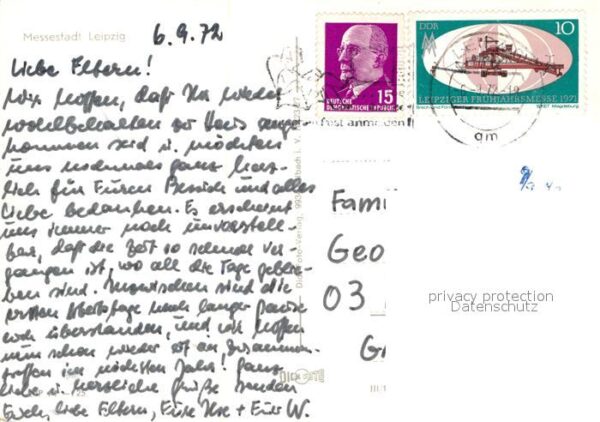 Messestadt Leipzig
6.9.72
Liebe Eltern!
Wir hoffen, daß Ihr wieder
wohlbehalten zu Haus ange-
kommen seid u. möchten
uns nochmals ganz herz-
lich für Euren Besuch und alles
Liebe bedanken. Es erscheint
uns immer noch unvorstell-
bar, daß die Zeit so schnell ver-
gangen ist, wo all die Tage geblie-
ben sind. Inzwischen sind die
ersten Arbeitstage nach langer Pause
auch überstanden, und wir hoffen
nun schon wieder auf ein Zusammen-
treffen im nächsten Jahr! Ganz
liebe u. herzliche Grüße senden
Euch, liebe Eltern, Eure Ilse + Euer W.
15
DEUTSCHE
DEMOKRATISCHE REPUBLIK
DDR
10
LEIPZIGER FRÜHJAHRSMESSE 1971
am
Fami
Geo
03
G
privacy protection
Datenschutz